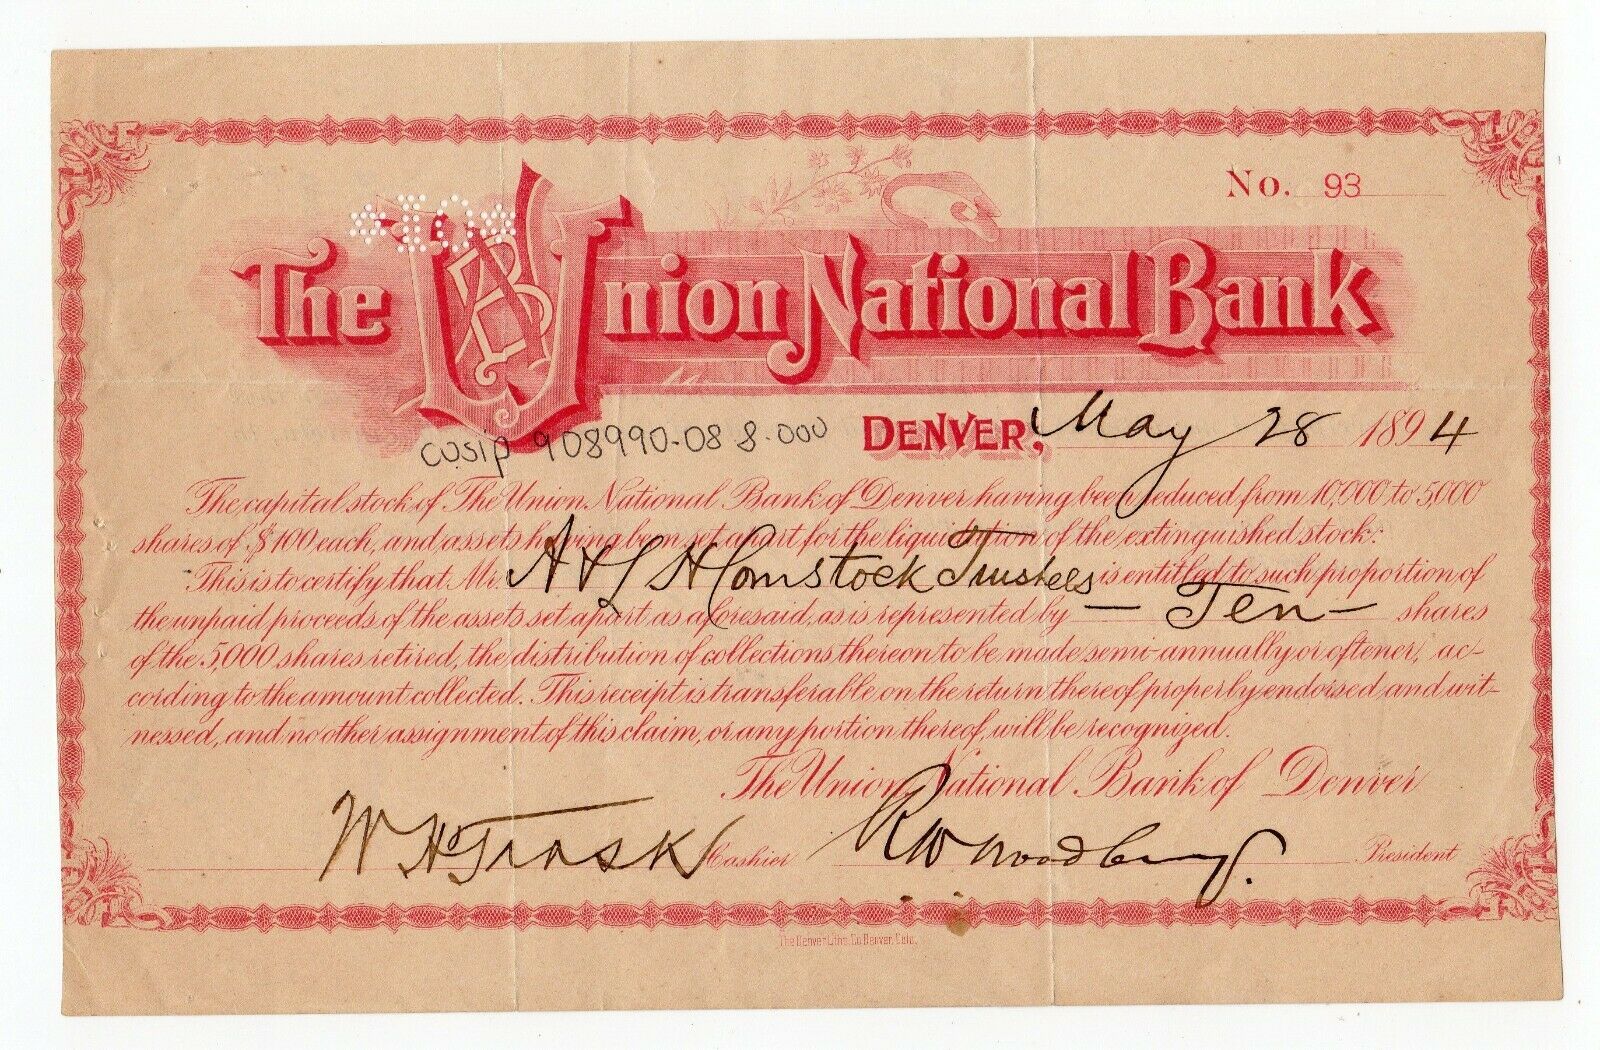 No. 93
The Union National Bank
DENVER, May 28 1894
cusip 908990-08 8.000
The capital stock of The Union National Bank of Denver having been reduced from 10,000 to 5,000
shares of $100 each, and assets having been set apart for the liquidation of the extinguished stock:
This is to certify that Mr. A & L H Comstock Trustees is entitled to such proportion of
the unpaid proceeds of the assets set apart as aforesaid, as is represented by — Ten — shares
of the 5,000 shares retired, the distribution of collections thereon to be made semi-annually or oftener, ac-
cording to the amount collected. This receipt is transferable on the return thereof properly endorsed and wit-
nessed, and no other assignment of this claim, or any portion thereof, will be recognized.
The Union National Bank of Denver
W H Trask Cashier R W Woodbury. President
The Denver Litho. Co. Denver, Colo.